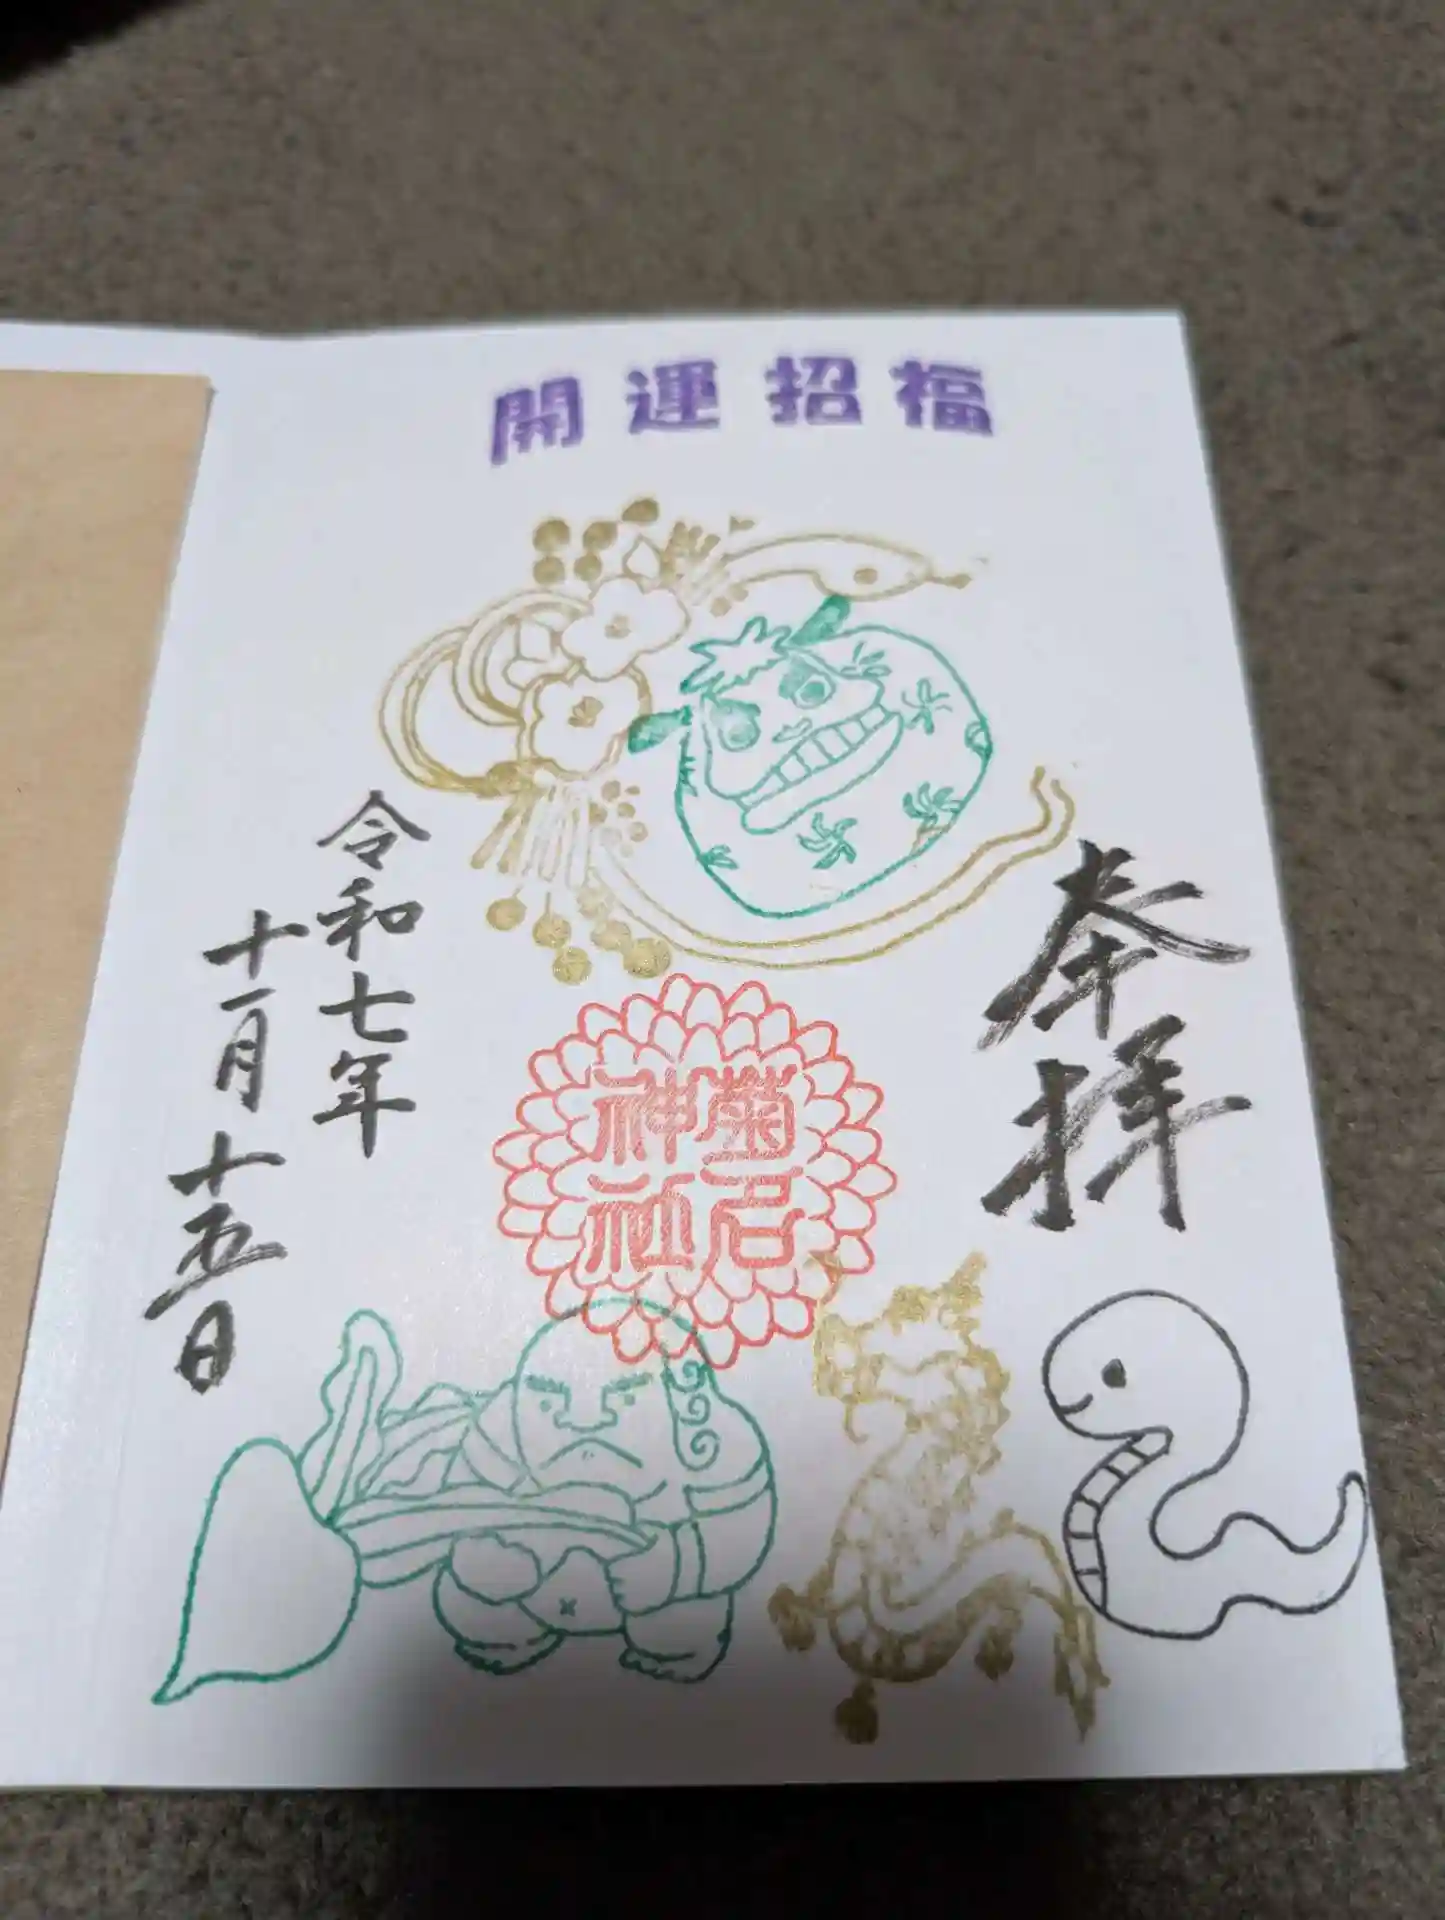 開運招福
奉拝
菊名
神社
令和七年
十一月十五日